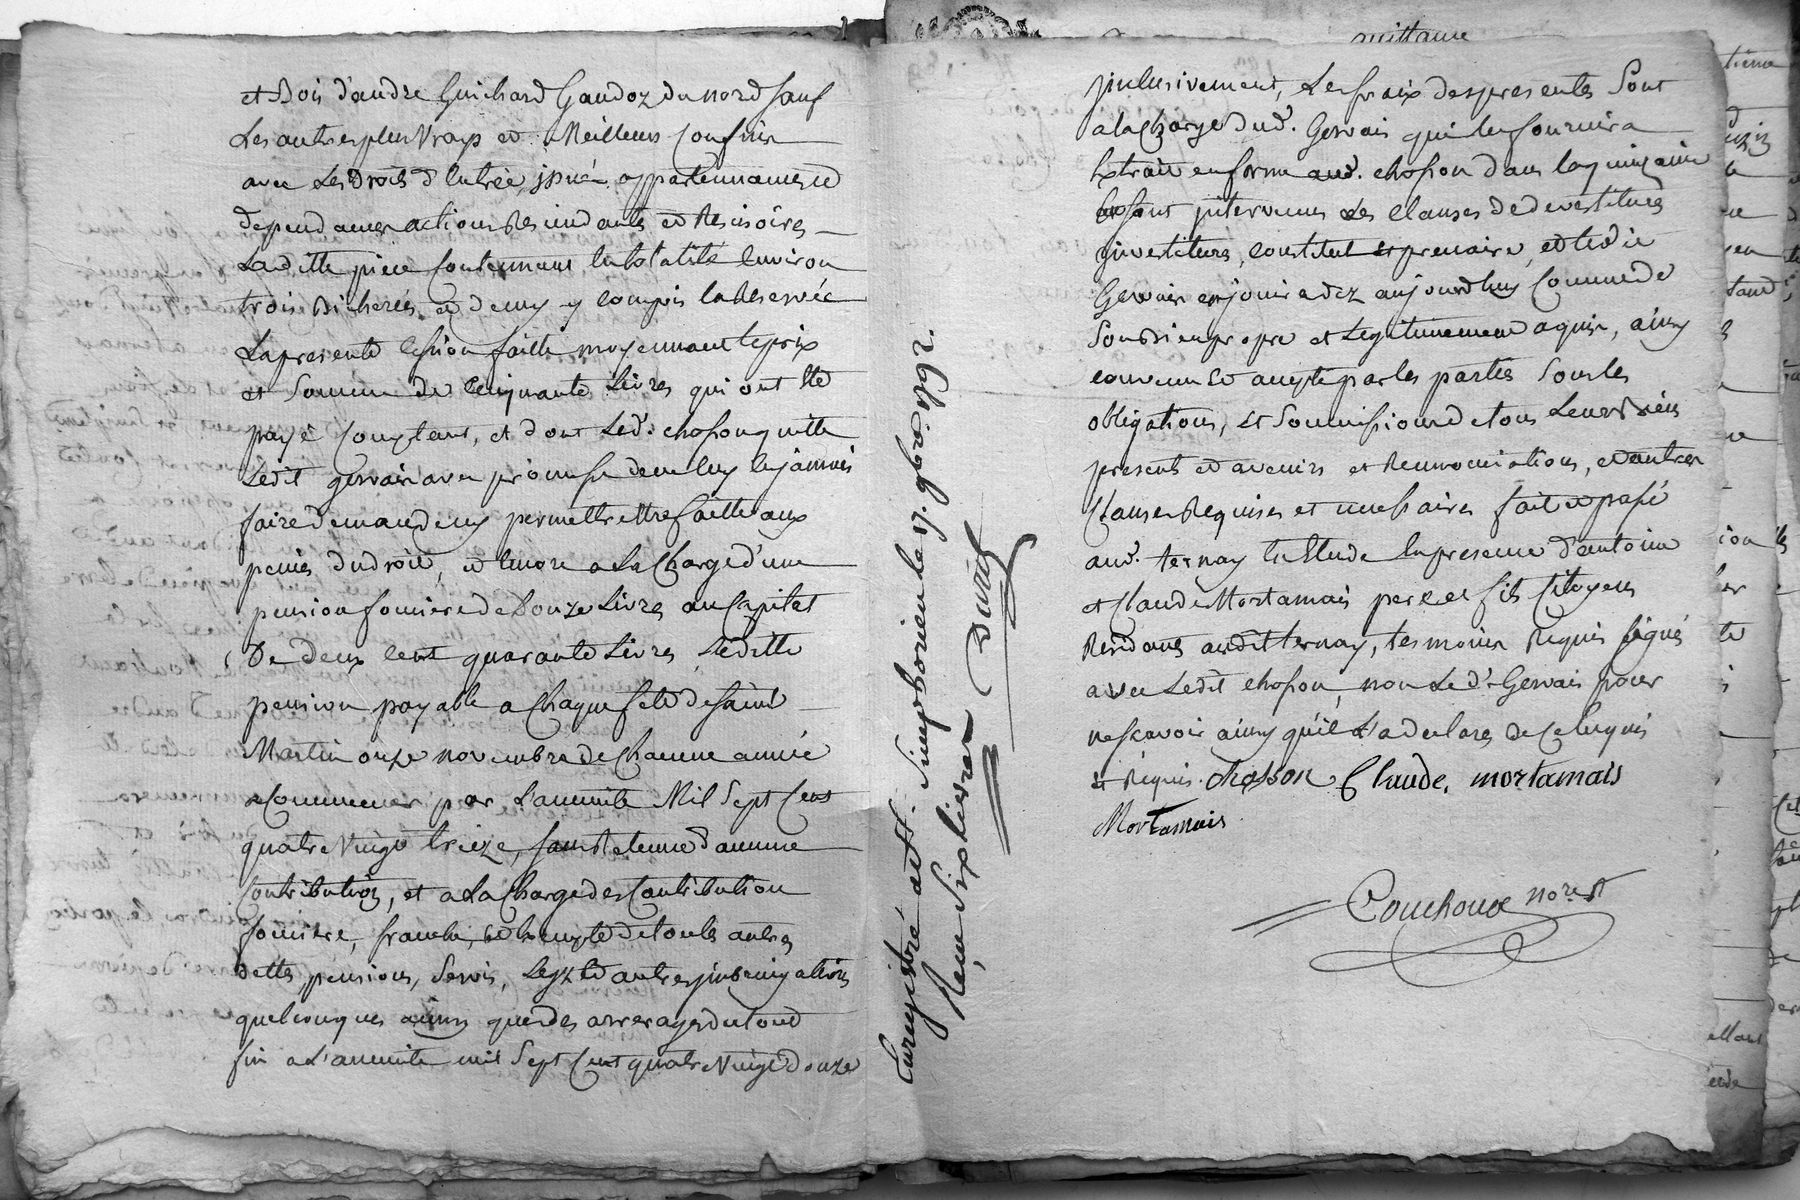 et Bois d'andré Guichard Gaudoz du nord sauf
Les autres plus Vrays et Meilleurs Confins
avec Les Droits d'Entrée, appartenances et
dependances actions Rescindantes et Rescisoires
Laditte piece Contennant en totalité Environ
trois Bicherés et demy y Compris la Reservée
La presente Cession faitte moyennant le prix
et Somme de Cinquante Livres qui ont Eté
payé Comptant, et dont Led. chosson quitte
Ledit gervais avec promesse de ne luy en jamais
faire demande ny permettre Etre faitte aux
peines du droit, et Encore a La Charge d'une
pension fonciere de Douze Livres au Capital
De deux Cent quarante Livres, Laditte
pension payable a Chaque fete de Saint
Martin onze novembre de Chacune année
a Commencer par L'anneé Mil Sept Cent
quatre Vingt treize, sans Retenue d'aucune
Contribution, et a La Charge des Contribution
fonciere, franche, et Exempte de toutes autres
dettes, pensions, Servis, Legz et autres
quelconques ainsy que des arrerages du tout
fin a L'anneé mil Sept Cent quatre Vingt Douze
inclusivement, Les fraix des presentes Sont
a la Charge dud. Gervais qui en fournira
Extrait en forme aud. chosson dans la quinzaine
intervenus Les Clauses de devestitures
investitures, Constitut et precaire, et ledit
Gervais en jouir a dez aujourdhuy Comme de
Son Bien propre et Legitimement aquis, ainsy
convenu Et accepté par les parties Sous les
obligations, et Soumissions de tous Leurs Biens
presents et avenirs et Renonciations, et autres
Clauses Requises et necessaires fait et passé
aud. ternay En Etude En presence d'antoine
et Claude Mortamais pere et fils Citoyens
Residants audit ternay, temoins Requis signés
avec Ledit chosson, non Led. Gervais pour
ne sçavoir ainsy qu'il L'a declaré de Ce Enquis
et Requis. Chosson Claude. mortamais
Mortamais
Couchoud nore
Enregistré a St. Simphorien le 17. 9bre. 1792.
Reçu Six Livres